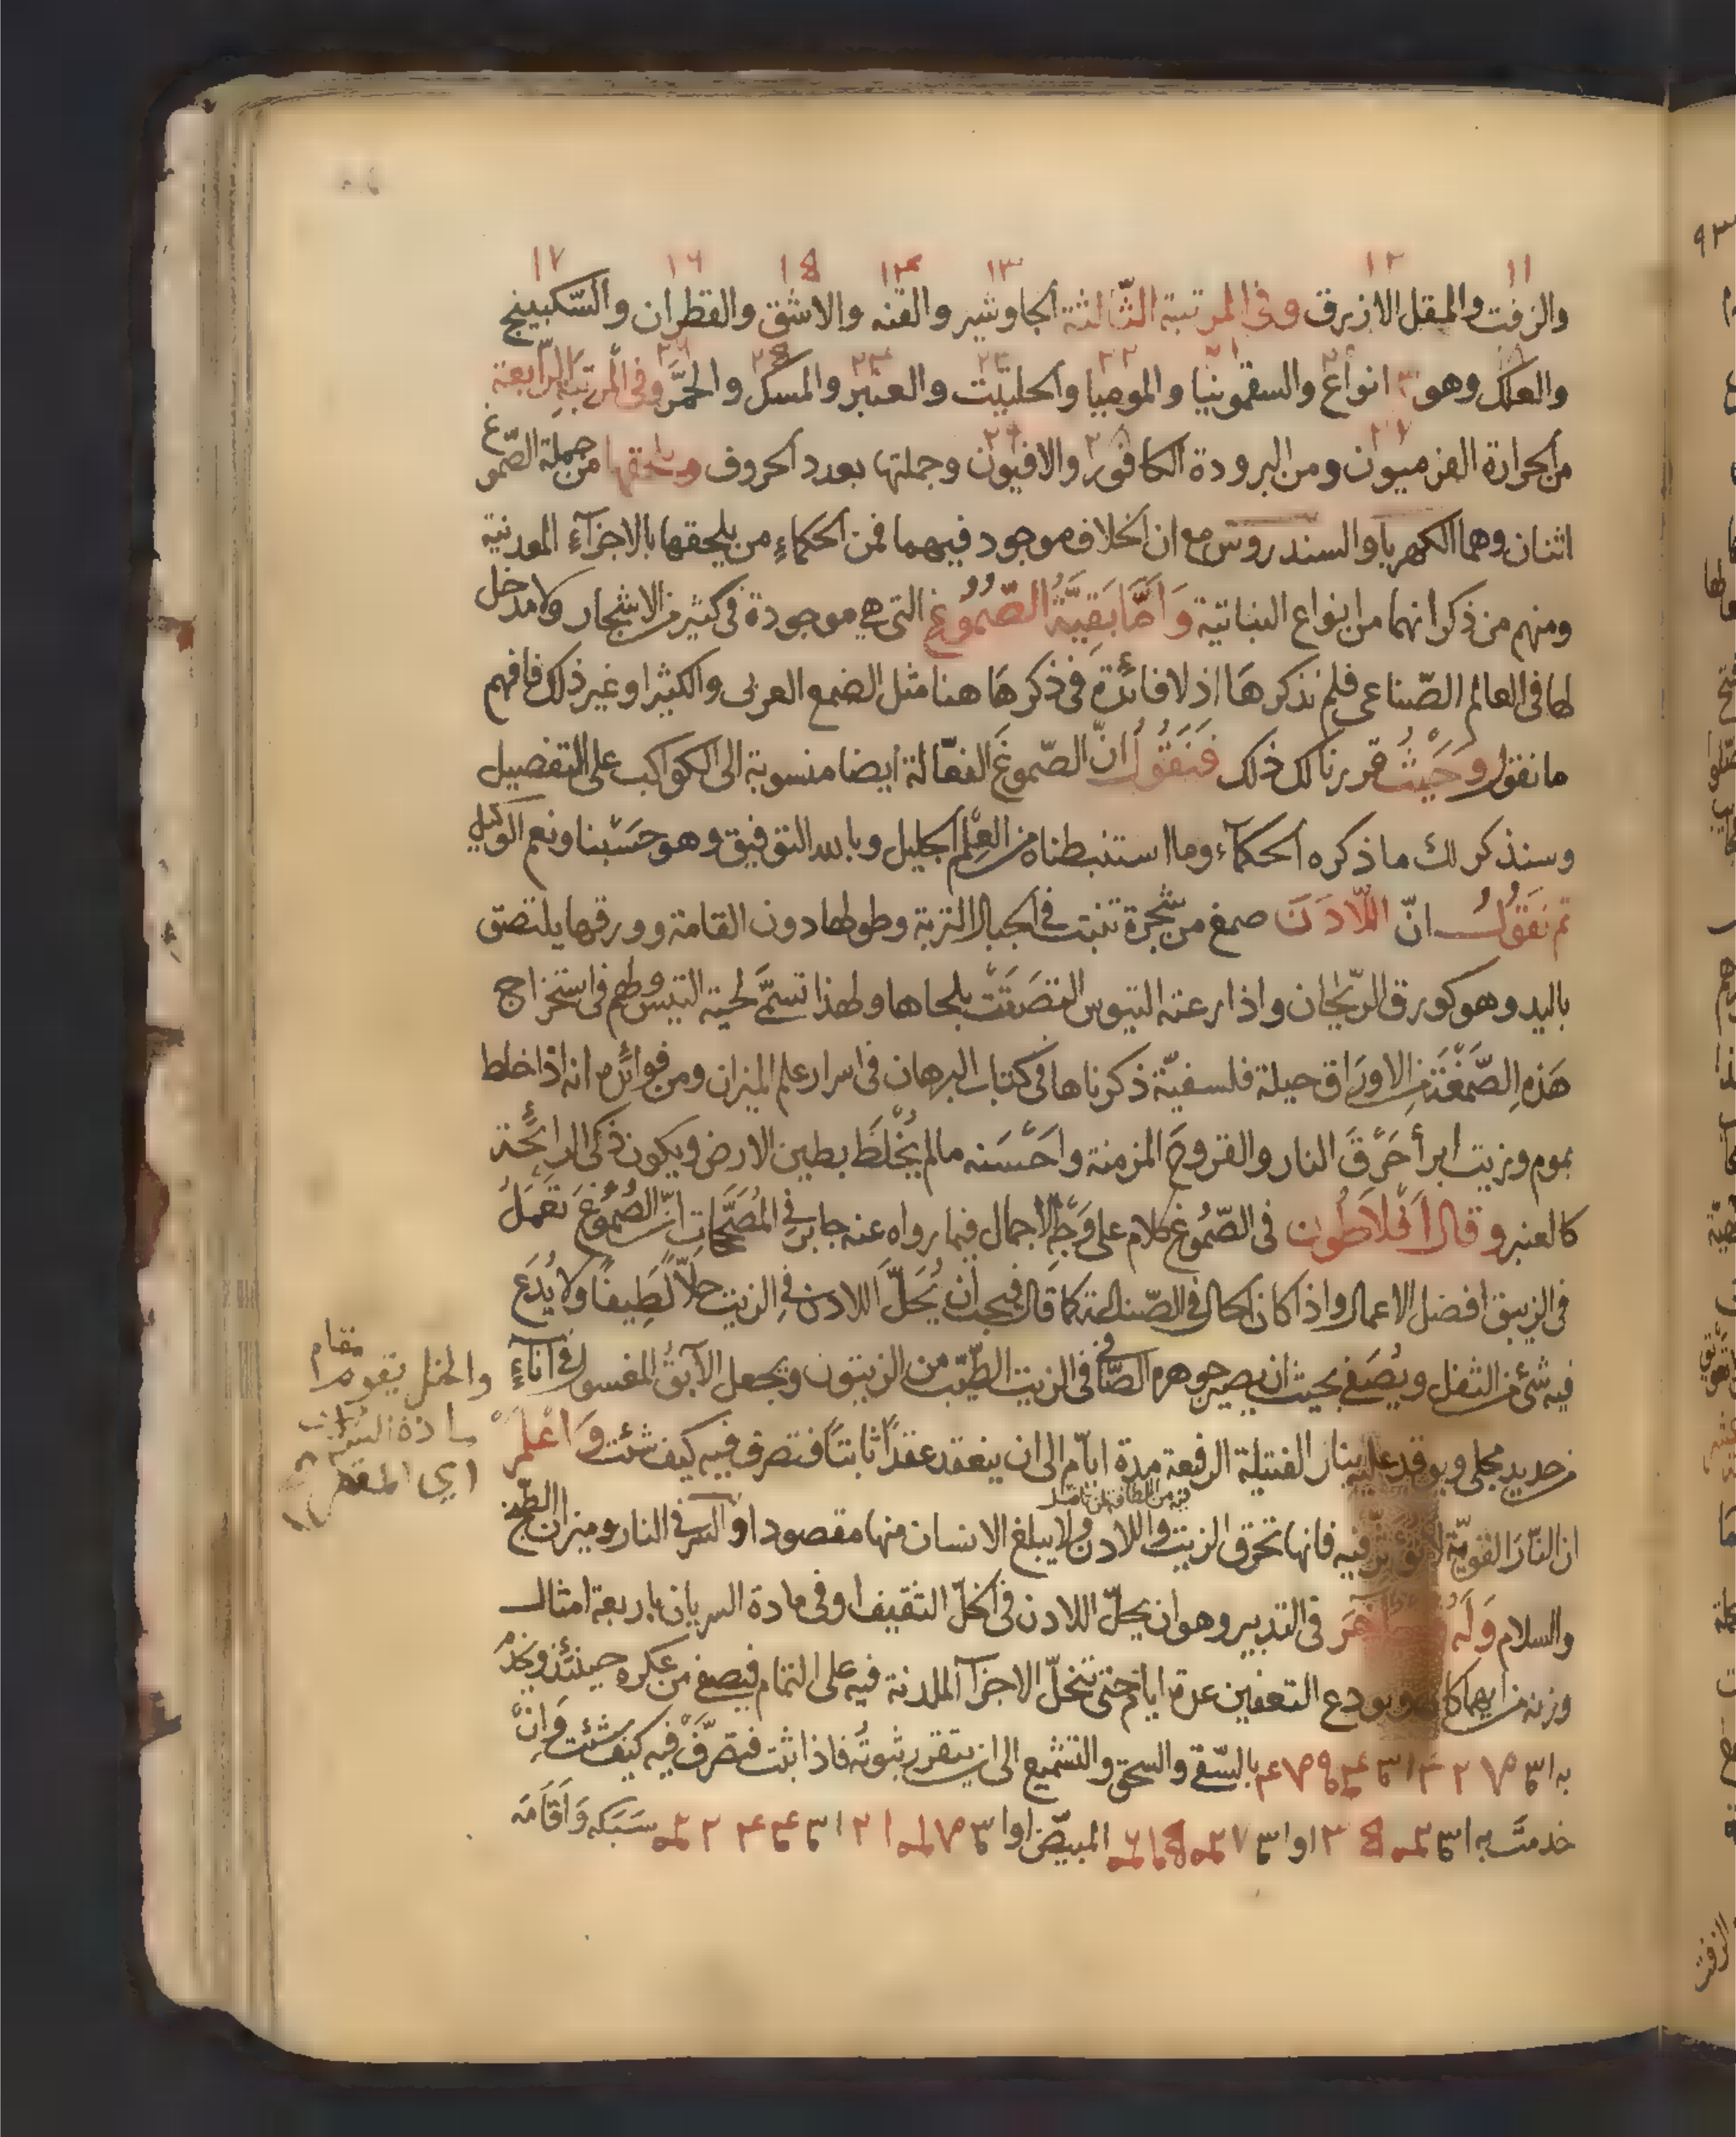 ١١ ١٢ ١٣ ١٤ ١٥ ١٦ ١٧
والزفت والمقل الازرق وفى المرتبة الثّالثة الجاوشير والقنه والاشق والقطران والسّكبينج
والعلك وهو ٣ انواع والسقمونيا والموميا والحلتيت والعنبر والمسك والخمر وفى المرتبة الرّابعة
من الحرارة الفربيون ومن البرودة الكافور والافيون وجملتها بعدد الحروف ويلحقها من جملة الصّموغ
اثنان وهما الكهربا والسندروس مع ان الخلاف موجود فيهما فمن الحكماء من يلحقها بالاجزآء المعدنية
ومنهم من ذكر انهما من انواع النباتية وَامَّا بَقِيَّةُ الصّمُوُغِ التى هي موجودة فى كثير من الاشجار ولا مدخل
لها فى العالم الصّناعى فلم نذكرهَا اذ لا فائدة فى ذكرهَا هنا مثل الصمغ العربى والكثيرا وغير ذلك فافهم
ما نقول وَحَيْثُ قررنا لك ذلك فَنَقُولُ انّ الصّموغَ الفعّالة ايضا منسوبة الى الكواكب على التفصيل
وسنذكر لك ما ذكره الحكمآء وما استنبطناه من العِلْم الجليل وبالله التوفيق وهو حَسْبنا ونعم الوكيل
ثم نَقُولُ انّ اللّادَنَ صمغ من شجرة تنبت فى الجبال التربة وطولها دون القامة وورقها يلتصق
باليد وهو كورق الرّيحان واذا رعته التيوس التصَقَتْ بلحاها ولهذا تسمَّى لحية التيس ولهم فى استخراج
هَذهِ الصَّمْغَة من الاورَاق حيلة فلسفيّة ذكرناها فى كتاب البرهان فى اسرار علم الميزان ومن فوائده انه اذا خلط
بموم وزيت ابرأ حَرْقَ النار والقروحَ المزمنة واحْسَنه ما لم يُخْلَطْ بطين الارض ويكون ذكى الرائحة
كالعنبر وقال افْلَاطُون فى الصّمُوغ كلام على وَجْهِ الاجمال فيما رواه عنه جابر فِى المُصَحَّحَاتِ انّ الصُمُوغَ تَعْمَلُ
فى الزيبق افضل الاعمال واذا كان الحال فى الصّناعة كما قال فيجب أن يُحَلّ اللادن فِى الزيت حلّاً لَطِيفاً ولا يُدَع
فيه شئ من الثفل ويُصَفى بحيث ان يصير جوهره الصّافى فى الزيت الطّيّب من الزيتون ويجعل الآبقُ المغسول فى آناءٍ
من حديد مجلى ويوقد عليه بنار الفتيلة الرفعة مدة ايّام الى ان ينعقد عقداً ثابتاً فتصرف فيه كيف شئت وَاعْلَمْ
ان النّارَ القويّة لا تؤثّر فيه فانها تحرق الزيت واللادن ولا يبلغ الانسان منها مقصودا والسر فى النار وميزان الطّبخ
والسلام وَلَهُ آخَر فى التدبير وهو ان يحلّ اللادن فى الخلّ الثقيف او فى مادة السريان باربعة امثال
وزنه من ايهما كان ويودع التعفين عدة ايام حتى تنحلّ الاجزآ اللدنة فيه على التمام فيصفى من عكره حينئذ ويُخدَمُ
به بالسّقى والسحق والتشميع الى ان يتقرر ثبوتُه فاذا ثبت فتصَرَّفْ فيه كيف شئت وَاِنْ
خدمتَ به المبيّض سَبَكه وَاَقَامَه
والخل يقوم مقام
مادة السريان
اى المقطر